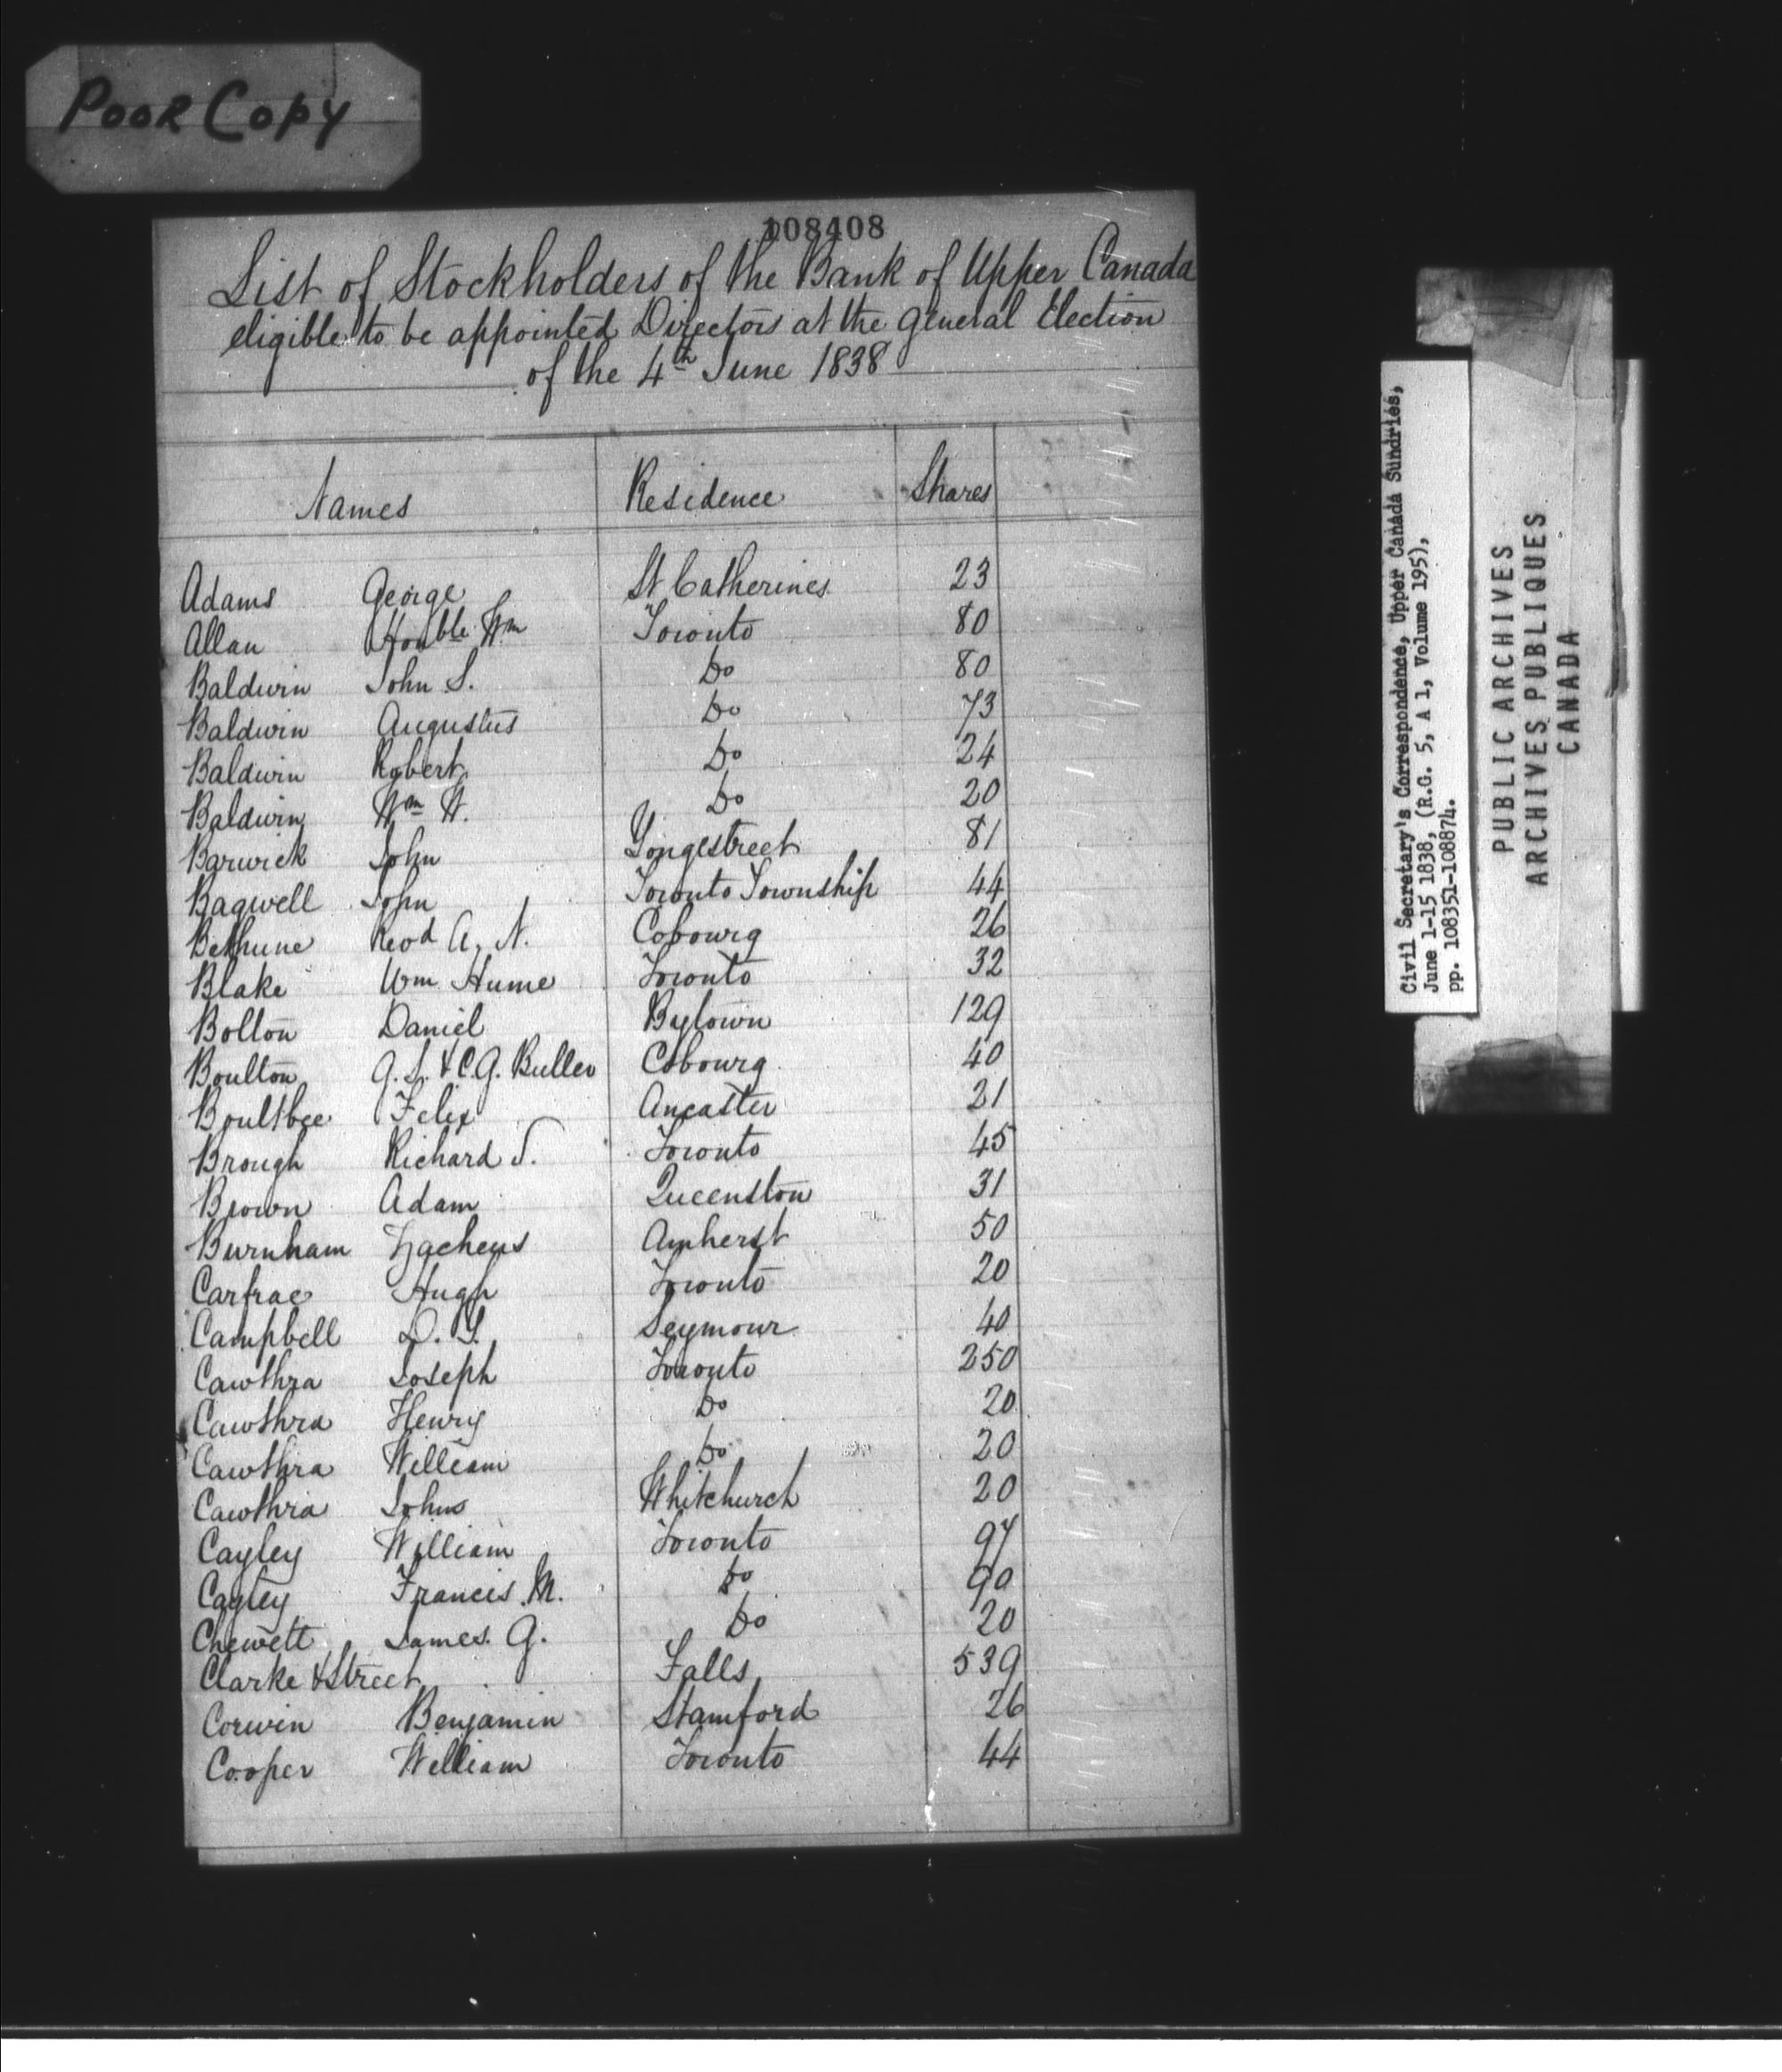 Poor Copy
108408
List of Stockholders of the Bank of Upper Canada
eligible to be appointed Directors at the general Election
of the 4th June 1838
Names Residence Shares
Adams George St Catherines 23
Allan Honble Wm Toronto 80
Baldwin John S. Do 80
Baldwin Augustus Do 73
Baldwin Robert Do 24
Baldwin Wm W. Do 20
Barwick John Yongestreet 81
Bagwell John Toronto Township 44
Bethune Revd A. N. Cobourg 26
Blake Wm Hume Toronto 32
Bolton Daniel Bytown 129
Boulton G. S. & C.G. Buller Cobourg 40
Boultbee Felix Ancaster 21
Brough Richard S. Toronto 45
Brown Adam Queenston 31
Burnham Zacheus Amherst 50
Carfrae Hugh Toronto 20
Campbell D. S. Seymour 40
Cawthra Joseph Toronto 250
Cawthra Henry Do 20
Cawthra William Do 20
Cawthra John Whitchurch 20
Cayley William Toronto 94
Cayley Francis M. Do 90
Chewett James G. Do 20
Clarke & Street Falls 539
Corwin Benjamin Stamford 26
Cooper William Toronto 44
Civil Secretary's Correspondence, Upper Canada Sundries,
June 1-15 1838, (R.G. 5, A 1, Volume 195),
pp. 108351-108874.
PUBLIC ARCHIVES
ARCHIVES PUBLIQUES
CANADA